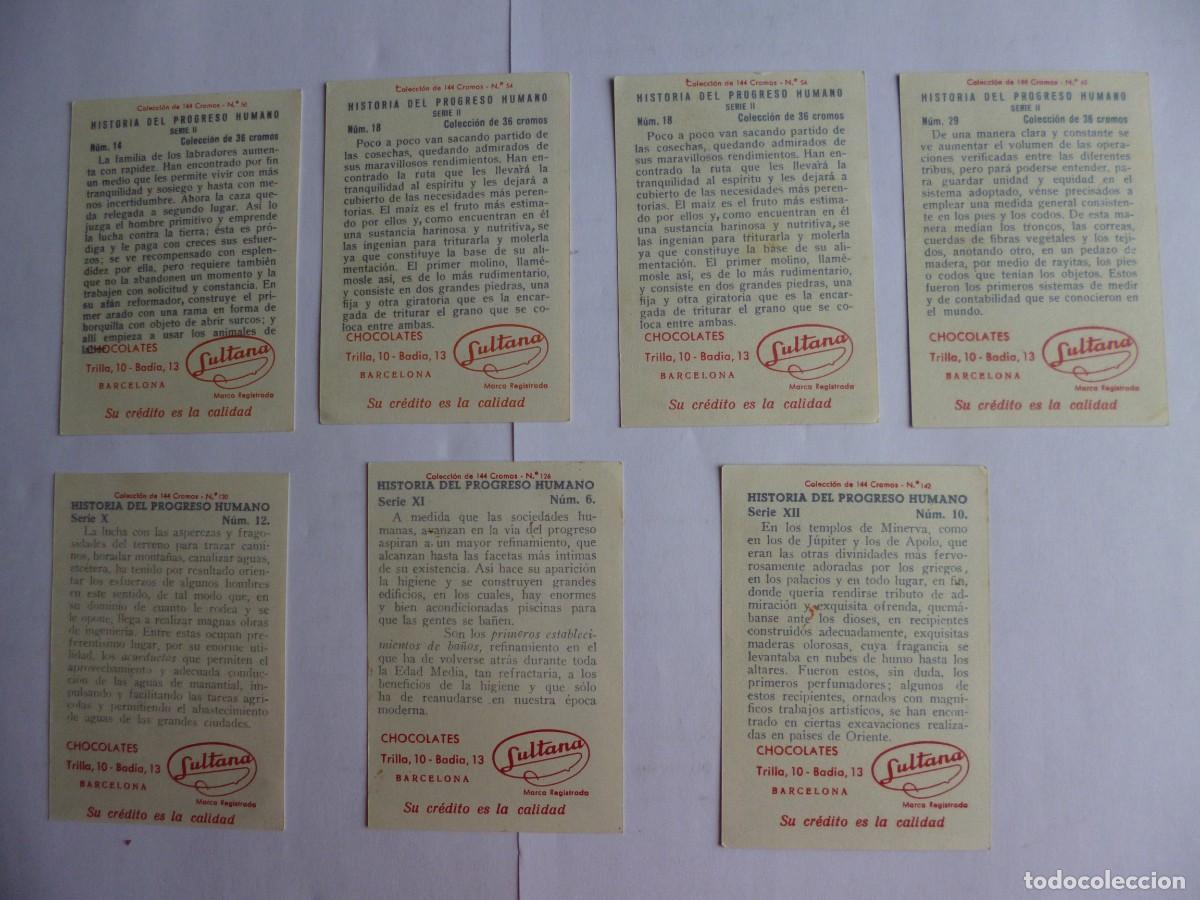 Colección de 144 Cromos - N.º 50
HISTORIA DEL PROGRESO HUMANO
SERIE II
Núm. 14 Colección de 36 cromos
La familia de los labradores aumen-
ta con rapidez. Han encontrado por fin
un medio que les permite vivir con más
tranquilidad y sosiego y hasta con me-
nos incertidumbre. Ahora la caza que-
da relegada a segundo lugar. Así lo
juzga el hombre primitivo y emprende
la lucha contra la tierra; ésta es pró-
diga y le paga con creces sus esfuer-
zos; se ve recompensado con esplen-
didez por ella, pero requiere también
que no la abandonen un momento y la
trabajen con solicitud y constancia. En
su afán reformador, construye el pri-
mer arado con una rama en forma de
horquilla con objeto de abrir surcos; y
allí empieza a usar los animales de
CHOCOLATES
Trilla, 10 - Badía, 13
BARCELONA
Sultana
Marca Registrada
Su crédito es la calidad
Colección de 144 Cromos - N.º 54
HISTORIA DEL PROGRESO HUMANO
SERIE II
Núm. 18 Colección de 36 cromos
Poco a poco van sacando partido de
las cosechas, quedando admirados de
sus maravillosos rendimientos. Han en-
contrado la ruta que les llevará la
tranquilidad al espíritu y les dejará a
cubierto de las necesidades más peren-
torias. El maíz es el fruto más estima-
do por ellos y, como encuentran en él
una sustancia harinosa y nutritiva, se
las ingenian para triturarla y molerla
ya que constituye la base de su ali-
mentación. El primer molino, llamé-
mosle así, es de lo más rudimentario,
y consiste en dos grandes piedras, una
fija y otra giratoria que es la encar-
gada de triturar el grano que se co-
loca entre ambas.
CHOCOLATES
Trilla, 10 - Badía, 13
BARCELONA
Sultana
Marca Registrada
Su crédito es la calidad
Colección de 144 Cromos - N.º 54
HISTORIA DEL PROGRESO HUMANO
SERIE II
Núm. 18 Colección de 36 cromos
Poco a poco van sacando partido de
las cosechas, quedando admirados de
sus maravillosos rendimientos. Han en-
contrado la ruta que les llevará la
tranquilidad al espíritu y les dejará a
cubierto de las necesidades más peren-
torias. El maíz es el fruto más estima-
do por ellos y, como encuentran en él
una sustancia harinosa y nutritiva, se
las ingenian para triturarla y molerla
ya que constituye la base de su ali-
mentación. El primer molino, llamé-
mosle así, es de lo más rudimentario,
y consiste en dos grandes piedras, una
fija y otra giratoria que es la encar-
gada de triturar el grano que se co-
loca entre ambas.
CHOCOLATES
Trilla, 10 - Badía, 13
BARCELONA
Sultana
Marca Registrada
Su crédito es la calidad
Colección de 144 Cromos - N.º
HISTORIA DEL PROGRESO HUMANO
SERIE II
Núm. 29 Colección de 36 cromos
De una manera clara y constante se
ve aumentar el volumen de las opera-
ciones verificadas entre las diferentes
tribus, pero para poderse entender, pa-
ra guardar unidad y equidad en el
sistema adoptado, vénse precisados a
emplear una medida general consisten-
te en los pies y los codos. De esta ma-
nera median los troncos, las correas,
cuerdas de fibras vegetales y los teji-
dos, anotando otro, en un pedazo de
madera, por medio de rayitas, los pies
o codos que tenían los objetos. Estos
fueron los primeros sistemas de medir
y de contabilidad que se conocieron en
el mundo.
CHOCOLATES
Trilla, 10 - Badía, 13
BARCELONA
Sultana
Marca Registrada
Su crédito es la calidad
Colección de 144 Cromos - N.º 120
HISTORIA DEL PROGRESO HUMANO
Serie X Núm. 12.
La lucha con las asperezas y frago-
sidades del terreno para trazar cami-
nos, horadar montañas, canalizar aguas,
etcétera, ha tenido por resultado orien-
tar los esfuerzos de algunos hombres
en este sentido, de tal modo que, en
su dominio de cuanto le rodea y se
le opone, llega a realizar magnas obras
de ingeniería. Entre estas ocupan pre-
ferentísimo lugar, por su enorme uti-
lidad, los acueductos que permiten el
aprovechamiento y adecuada conduc-
ción de las aguas de manantial, im-
pulsando y facilitando las tareas agrí-
colas y permitiendo el abastecimiento
de aguas de las grandes ciudades.
CHOCOLATES
Trilla, 10 - Badía, 13
BARCELONA
Sultana
Marca Registrada
Su crédito es la calidad
Colección de 144 Cromos - N.º 126
HISTORIA DEL PROGRESO HUMANO
Serie XI Núm. 6.
A medida que las sociedades hu-
manas, avanzan en la vía del progreso
aspiran a un mayor refinamiento, que
alcanzan hasta las facetas más íntimas
de su existencia. Así hace su aparición
la higiene y se construyen grandes
edificios, en los cuales, hay enormes
y bien acondicionadas piscinas para
que las gentes se bañen.
Son los primeros estableci-
mientos de baños, refinamiento en el
que ha de volverse atrás durante toda
la Edad Media, tan refractaria, a los
beneficios de la higiene y que sólo
ha de reanudarse en nuestra época
moderna.
CHOCOLATES
Trilla, 10 - Badía, 13
BARCELONA
Sultana
Marca Registrada
Su crédito es la calidad
Colección de 144 Cromos - N.º 142
HISTORIA DEL PROGRESO HUMANO
Serie XII Núm. 10.
En los templos de Minerva, como
en los de Júpiter y los de Apolo, que
eran las otras divinidades más fervo-
rosamente adoradas por los griegos,
en los palacios y en todo lugar, en fin,
donde quería rendirse tributo de ad-
miración y exquisita ofrenda, quemá-
banse ante los dioses, en recipientes
construidos adecuadamente, exquisitas
maderas olorosas, cuya fragancia se
levantaba en nubes de humo hasta los
altares. Fueron estos, sin duda, los
primeros perfumadores; algunos de
estos recipientes, ornados con magní-
ficos trabajos artísticos, se han encon-
trado en ciertas excavaciones realiza-
das en países de Oriente.
CHOCOLATES
Trilla, 10 - Badía, 13
BARCELONA
Sultana
Marca Registrada
Su crédito es la calidad
todocoleccion